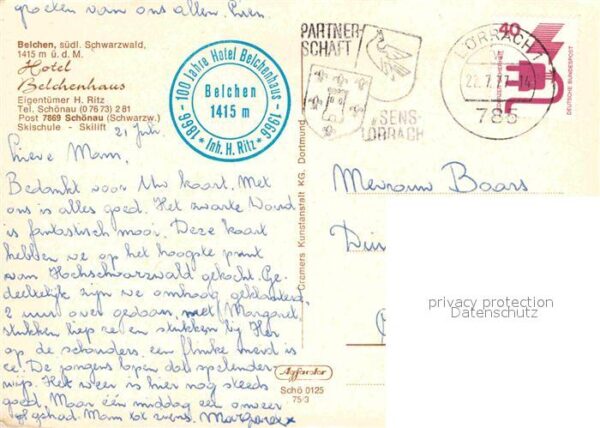 groeten van ons allen.
Belchen, südl. Schwarzwald,
1415 m ü. d. M.
Hotel
Belchenhaus
Eigentümer H. Ritz
Tel. Schönau (0 76 73) 2 81
Post 7869 Schönau (Schwarzw.)
Skischule - Skilift
1866 - 100 Jahre Hotel Belchenhaus - 1966
Belchen
1415 m
* Inh. H. Ritz *
PARTNER-
SCHAFT
SENS
LÖRRACH
LÖRRACH 1
22.7.77-14
785
40
DEUTSCHE BUNDESPOST
21 Juli.
Lieve Mam,
Bedankt voor Uw kaart. Met
ons is alles goed. Het zwarte Woud
is fantastisch mooi. Deze kaart
hebben we op het hoogste punt
van Hochschwarzwald gekocht. Ge-
deeltelijk zijn we omhoog geklauterd,
2 uur over gedaan, met Margaret
stukken en stukken bij
op de schouders, een flinke meid is
ze. De jongens lopen dat spelender
wijs. Het weer is hier nog steeds
goed. Maar één middag een onweer
gehad. Mam xx zoens. Margaret x
Mevrouw Baars
Cramers Kunstanstalt KG. Dortmund
Schö 0125
75·3
privacy protection
Datenschutz